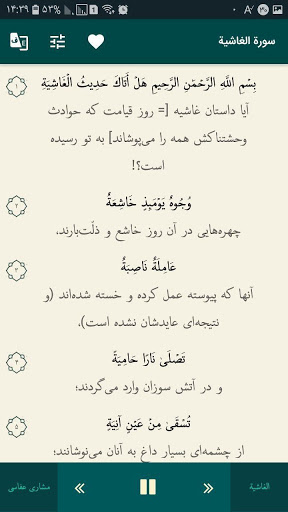 ۱۴:۳۹ ۵۳%
سورة الغاشية
بِسْمِ اللَّهِ الرَّحْمَٰنِ الرَّحِيمِ هَلْ أَتَاكَ حَدِيثُ الْغَاشِيَةِ
۱
آیا داستان غاشیه [= روز قیامت که حوادث
وحشتناکش همه را می‌پوشاند] به تو رسیده
است؟!
وُجُوهٌ يَوْمَئِذٍ خَاشِعَةٌ
۲
چهره‌هایی در آن روز خاشع و ذلّت‌بارند.
عَامِلَةٌ نَاصِبَةٌ
۳
آنها که پیوسته عمل کرده و خسته شده‌اند (و
نتیجه‌ای عایدشان نشده است).
تَصْلَىٰ نَارًا حَامِيَةً
۴
و در آتش سوزان وارد می‌گردند؛
تُسْقَىٰ مِنْ عَيْنٍ آنِيَةٍ
۵
از چشمه‌ای بسیار داغ به آنان می‌نوشانند؛
الغاشية
مشاری عفاسی